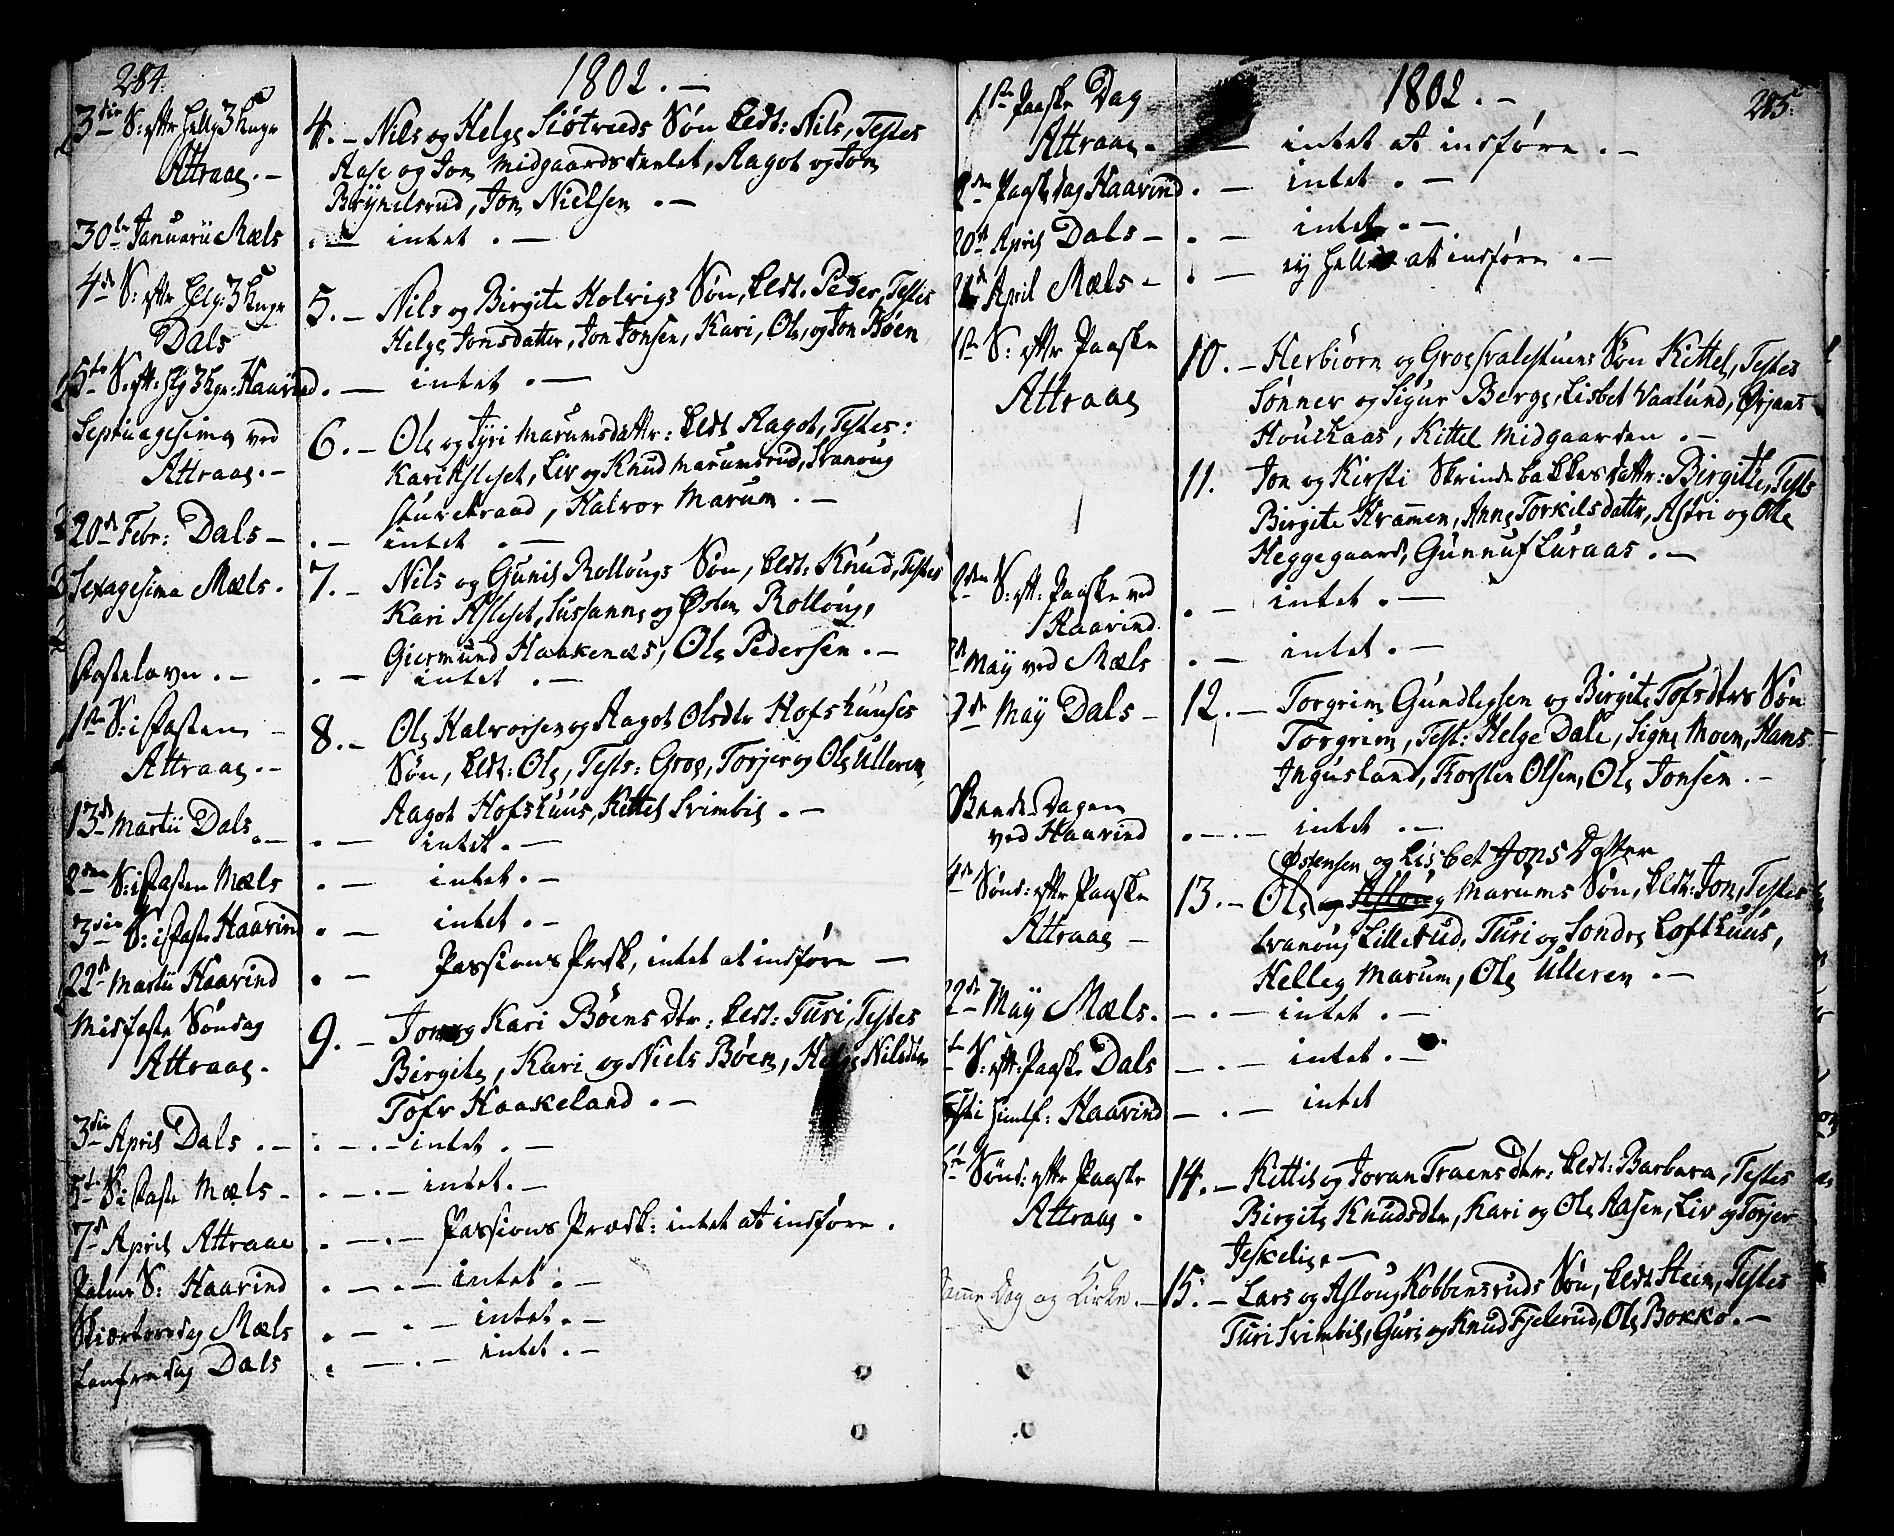 284.
1802. —
3die S: eftr hellg 3 Kngr
Attraae. —
4. — Nils og Helge Siøtveds Søn kldt: Nils, Testes
Aase og Jon Midgaardstenlet, Aagot og Jon
Brÿnelsrud, Jon Nielsen . —
30te Januarii Mæls . — intet . —
4de S: eftr helg: 3 Kngr
Dals
5. — Nils og Birgite Holvigs Søn, kldt. Peder, Testes
Helge Jonsdatter, Jon Jonsen, Kari, Ole, og Jon Bøen
5te S. eft: hlg 3 Kgr: Haavind . — intet . —
Septuagesima ved
Attraae. —
6. — Ole og Tÿri Marumsdattr: kldt Aagot, Testes:
Kari Asleset, Liv og Knud Marumsrud, Svanoug
Sturekraad, Halvor Marum . —
20de Febr: Dals — . — intet . —
Sexagesima Mæls.
7. — Nils og Gunil Rollougs Søn, kldt: Knud, Testes
Kari Asleset, Sussanne og Østen Rolloug,
Giermund Haakenæs, Ole Pedersen . —
Fastelavn . — . — intet . —
1ste S: i Fasten —
Attraae . —
8. — Ole Halvorsen og Aagot Olsdtr Hofshuuses
Søn, kldt: Ole, Tests: Groe, Torjer og Ole Ulleren,
Aagot Hofshuus, Kittel Svimbil . —
13de Martii Dals . — . — intet . —
2den S: i Fasten Mæls . — intet . —
3die S: i Faste Haavind . — intet . —
22de Martii Haavind . — Passions Præk, intet at indføre —
Midfaste Søndag
Attraae .
9. — Jon og Kari Bøens Dtr: kldt: Turi, Testes
Birgite, Kari og Niels Bøen, Helge Nilsdtr
Tofr Haakeland . —
3die April Dals . — . — . — intet . —
5te S: i Faste Mæls — . — . — intet. —
7de April Attraae . — . — Passions Prædk: intet at indføre .
Palme S: Haavind . — . — intet . —
Skiærtorsdag Mæls . — . — intet . —
Langfredag Dals . — . — intet . —
1802. —
285.
1ste Paaske Dag
Attraae . — intet at indføre . —
2den Paaskedag Haavind . — intet . —
20de April Dals — . — intet . —
April Mæls — . — eÿ heller at indføre . —
1ste S: eftr Paaske
Attraae
10. — Herbiørn og Groe Svalestuens Søn Kittel, Testes
Sønnev og Sigur Berge, Lisbet Vaalund, Ørjans
Houkaas, Kittel Midgaarden . —
11. Jon og Kirsti Skrindebakkes dattr: Birgitte, Tests
Birgite Kramen, Anne Torkilsdattr, Asbri og Ole
Heggegaard, Gunnuf Luraas . —
2den S: eft: Paaske ved
Haavind . — intet . —
May ved Mæls . — intet . —
7de Maÿ Dals —
12. — Torgrim Gundlegsen og Birgite Tofsdtrs Søn
Torgrim, Test: Helge Dale, Signe Moen, Hans
Ingusland, Torsten Olsen, Ole Jonsen . —
Beede Dagen
ved Haavind . — . — intet . —
Østensen og Lisbet Jons Datter
4de Sønd: eftr Paaske
Attraae —
13. — Ole og Aslaug Marums Søn, kldt: Jon, Testes
Svanoug Lillerud, Turi og Sondre Lofthuus,
Helleg Marum, Ole Ulleren . —
22de Maÿ Mæls. — . — intet . —
S: eftr: Paaske Dals — . — intet . —
Christi Himlf: Haavind — . — intet
Sønd: eftr Paaske
Attraae .
14. — Kittil og Joran Traens Dtr: kldt: Barbara, Testes
Birgite Knudsdtr, Kari og Ole Aasen, Liv og Torjer
Jeskelige —
Samme Dag og Kirke. —
15. — Lars og Asloug Kobbensruds Søn, kldt Stein, Testes
Turi Svimbil, Guri og Knud Fjelerud, Ole Bokko . —